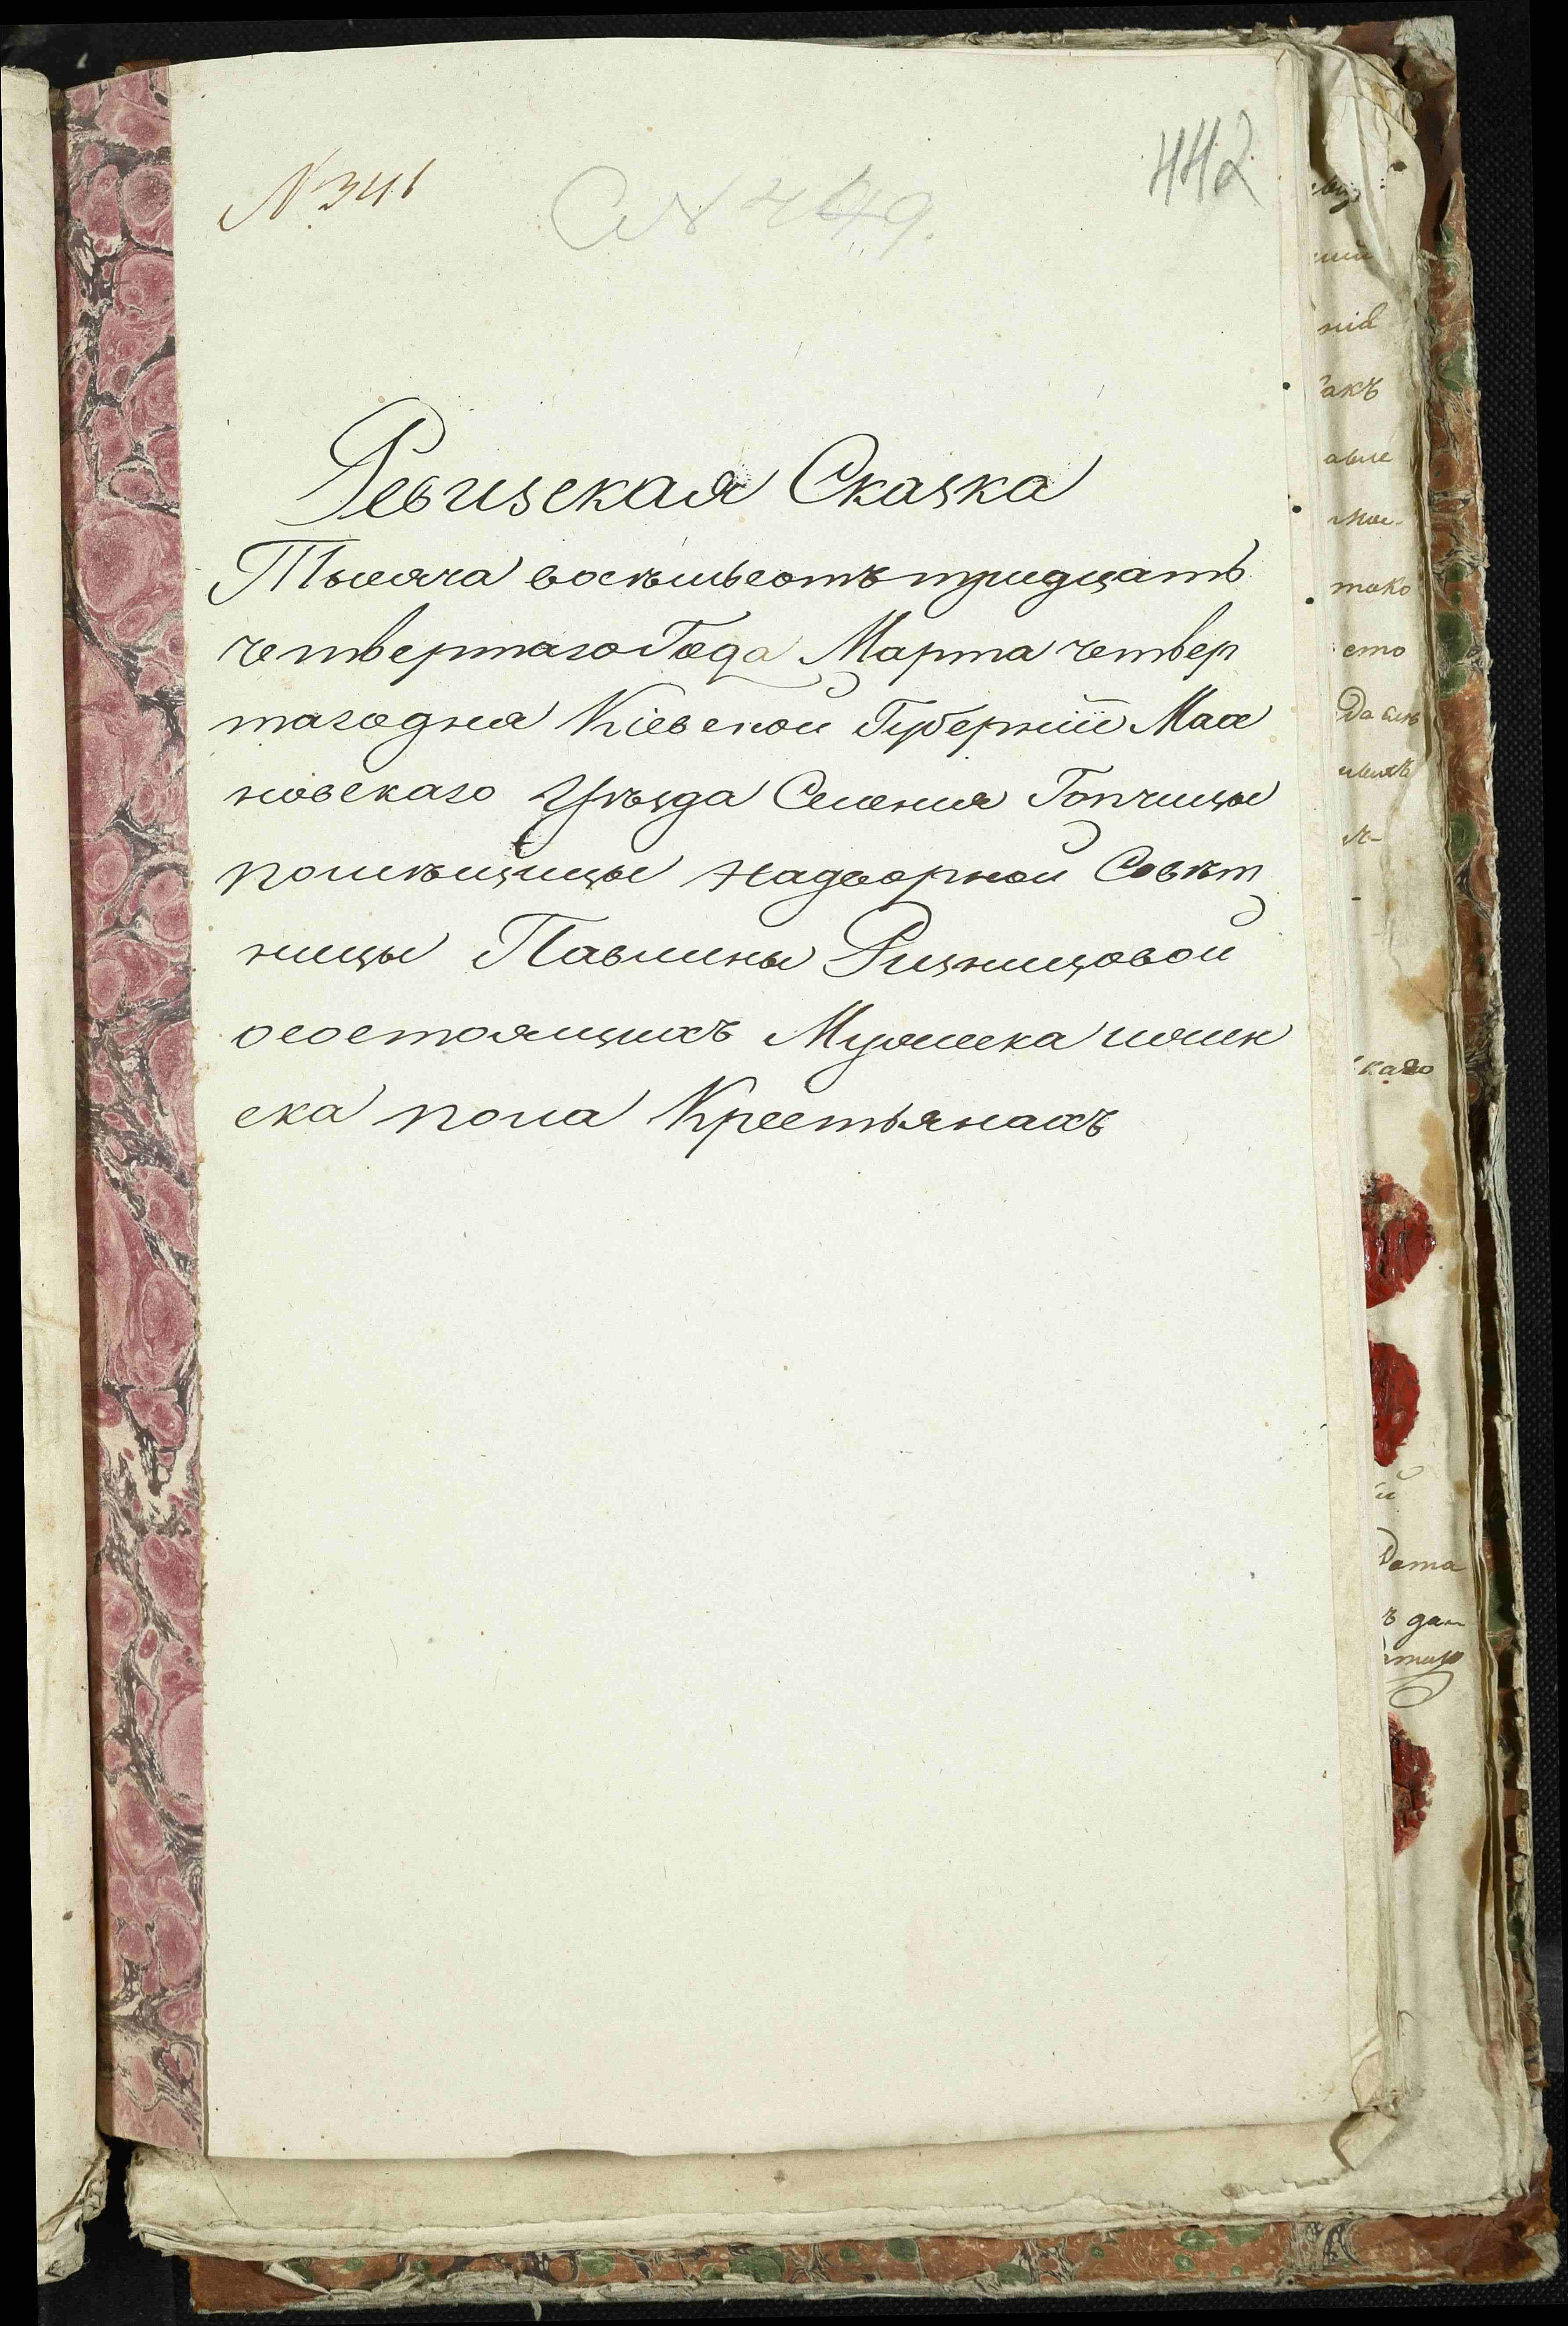 № 341
442
Ревизская Сказка
Тысяча восѣмьсотъ тридцать
четвертаго Года Марта четвер
таго дня Кіевской Губерніи Мах
новскаго Уѣзда Селенія Гопчицы
помѣщицы Надворной Совѣт
ницы Павлины Ризницовой
осостоящихъ Мужеска иженк
ска пола Крестьянахъ
акъ
тако
сто
каго